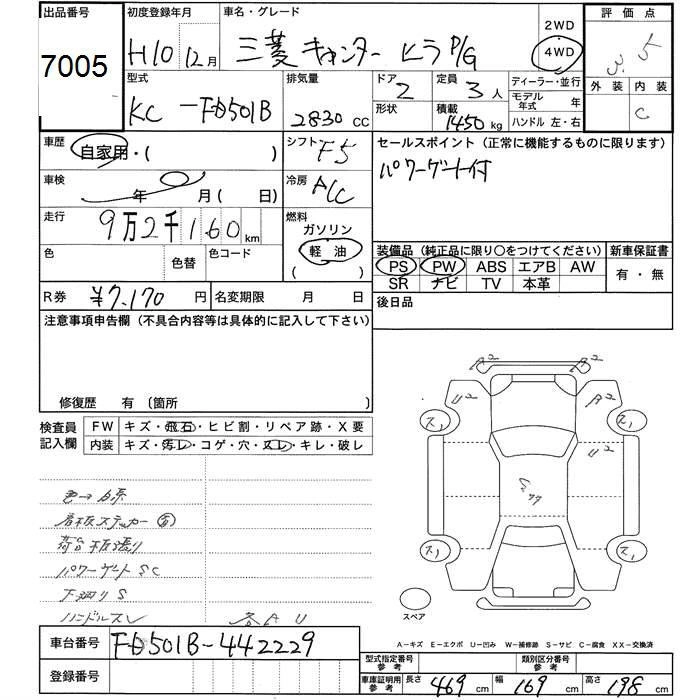 出品番号 初度登録年月 車名・グレード 2WD 評価点
7005 H10 12月 三菱 キャンター ヒラ P/G 4WD 3.5
型式 排気量 ドア 定員 ディーラー・並行 外装 内装
KC-FD501B 2830 cc 2 3人 モデル年式 年 C
形状 積載 1450 kg ハンドル 左・右
車歴 自家用・( ) シフト F5 セールスポイント(正常に機能するものに限ります)
車検 年 月( 日) 冷房 A/C パワーゲート付
走行 9万2千160km 燃料 ガソリン
軽油
( )
色 色替 色コード 装備品(純正品に限り○をつけてください) 新車保証書
PS PW ABS エアB AW 有・無
SR ナビ TV 本革
R券 ¥7,170 円 名変期限 月 日 後日品
注意事項申告欄(不具合内容等は具体的に記入して下さい)
修復歴 有 〔箇所 〕
検査員記入欄 FW キズ・飛石・ヒビ割・リペア跡・X要
内装 キズ・汚レ・コゲ・穴・スレ・キレ・破レ
A2 A2
U2 A2
ス1 ス1
U2
ス1 ス1
色→白系
看板ステッカー
荷台板張り
パワーゲートSC
下廻りS
ハンドルスレ 各AU
スペア
A-キズ E-エクボ U-凹み W-補修跡 S-サビ C-腐食 XX-交換済
車台番号 FD501B-442229
登録番号
型式指定番号参考 類別区分番号参考
車庫証明用参考 長さ 469 cm 幅 169 cm 高さ 198 cm